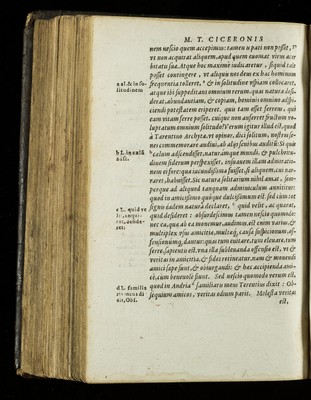 M. T. CICERONIS
nem nescio quem accepimus: tamen is pati non posset, vt
vt non acquirat aliquem, apud quem euomat virus acer
bitatis suæ. Atque hoc maximè iudicaretur, si quid tale
posset contingere, vt aliquis nos deus ex hac hominum
frequentia tolleret, & in solitudine vspiam collocaret,
atque ibi suppeditans omnium rerum, quas natura desi-
derat, abundantiam, & copiam, hominis omnino aspi-
ciendi potestatem eriperet. quis tam esset ferreus, qui
eam vitam ferre posset. cuique non auferret fructum vo-
luptatum omnium solitudo? Verum igitur illud est, quod
à Tarentino Archyta, vt opinor, dici solitum, nostros se-
nes commemorare audiui, ab alijs senibus auditū: Si quis
cælum ascendisset, naturámque mundi, & pulchritu-
dinem siderum perspexisset, insuauem illam admiratio-
nem ei fore: quæ iucundissima fuisset, si aliquem, cui nar-
raret, habuisset. Sic natura solitarium nihil amat, sem-
pérque ad aliquod tanquam adminiculum annititur:
quod in amicissimo quoque dulcissimum est. sed cùm tot
signis eadem natura declaret, quid velit, ac quærat,
quid desideret: obsurdescimus tamen nescio quomodo:
nec ea, quæ ab ea monemur, audimus. est enim varius, &
multiplex vsus amicitiæ, multæq́; causæ suspicionum, of-
fensionúmq; dantur: quas tum euitare, tum eleuare, tum
ferre, sapientis est. vna illa subleuanda offensio est, vt &
veritas in amicitia, & fides retineatur. nam & monendi
amici sæpe sunt, & obiurgandi: & hæc accipienda ami-
cè, cùm beneuolè fiunt. Sed nescio quomodo verum est,
quod in Andria familiaris meus Terentius dixit: Ob-
sequium amicos, veritas odium parit. Molesta veritas
est,
a al. & in so-
litudinem
b L. in cælū
c L. quid ve-
d L. familia